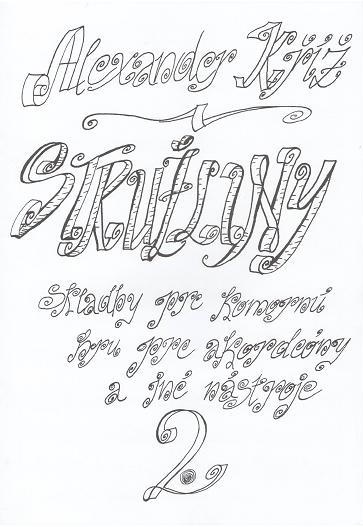 Alexander Kříž
STRUŽLINY
skladby pr komornú
hru pre akordeóny
a iné nástroje
2